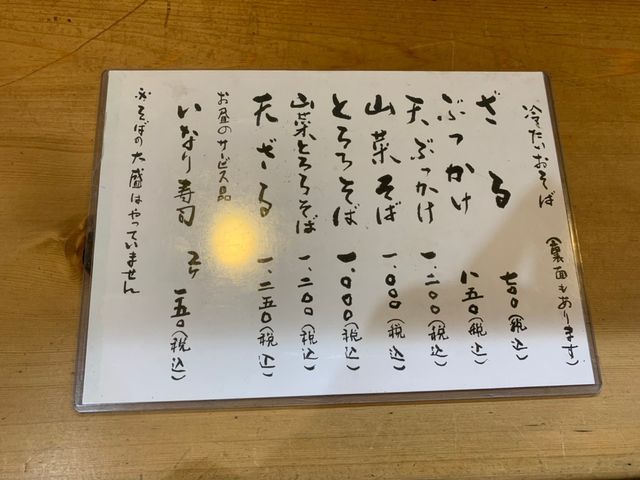 冷たいおそば (裏面もあります)
ざる 七〇〇(税込)
ぶっかけ 八五〇(税込)
天ぶっかけ 一、二〇〇(税込)
山菜そば 一、〇〇〇(税込)
とろろそば 一、〇〇〇(税込)
山菜とろろそば 一、二〇〇(税込)
天ざる 一、二五〇(税込)
お昼のサービス品
いなり寿司 2ヶ 一五〇(税込)
※そばの大盛はやっていません